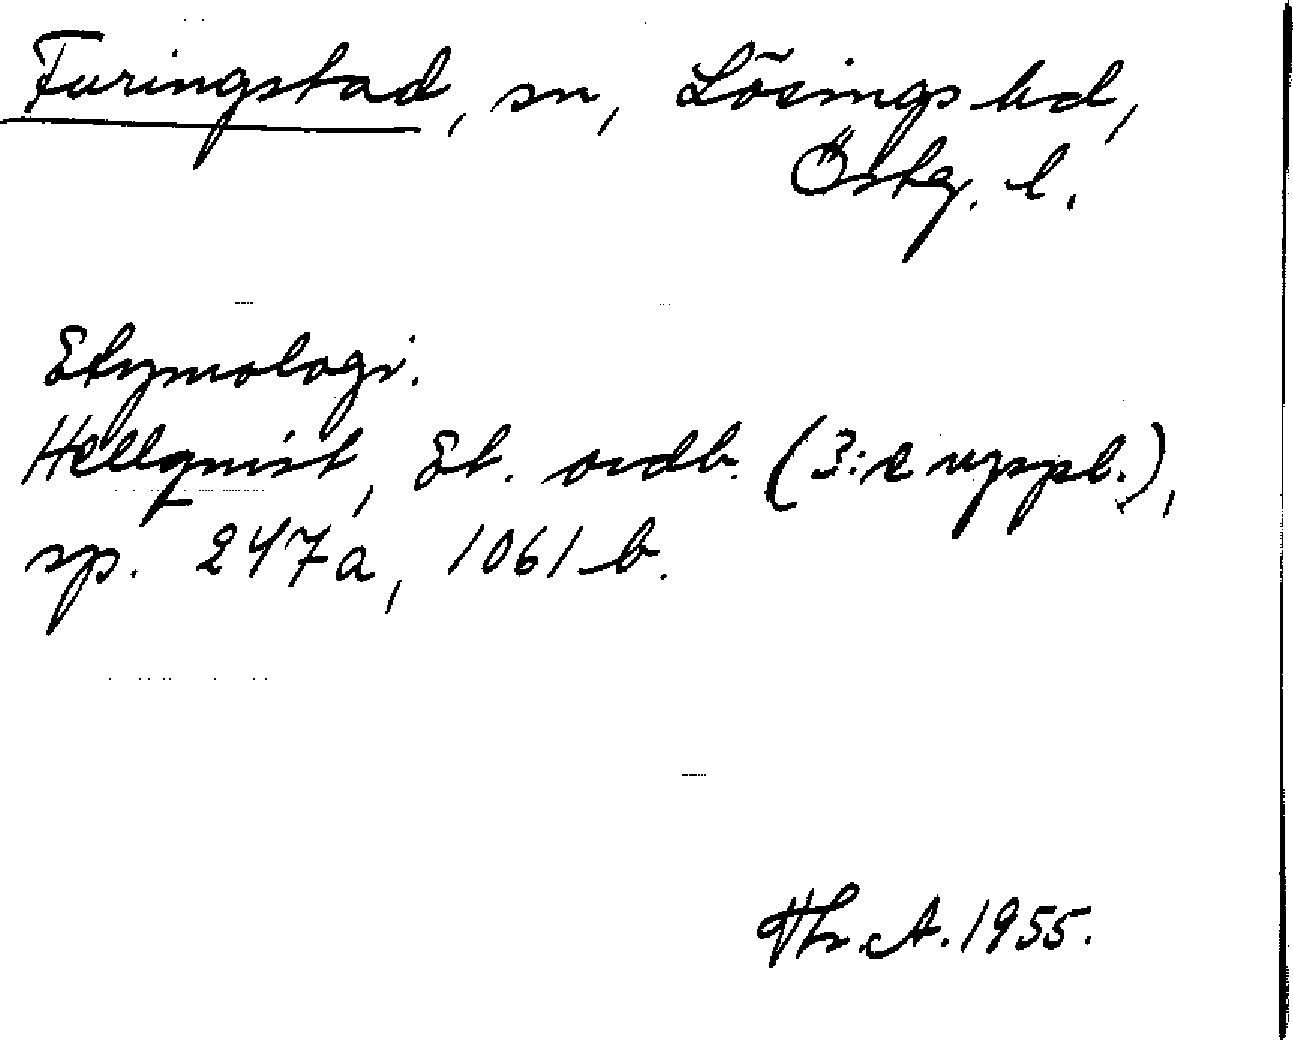 Furingstad, sn, Lösings hd,
Östg. l.
Etymologi.
Hellquist, Et. ordb. (3:e uppl.),
sp. 247a, 1061 b.
Thr. A. 1955.